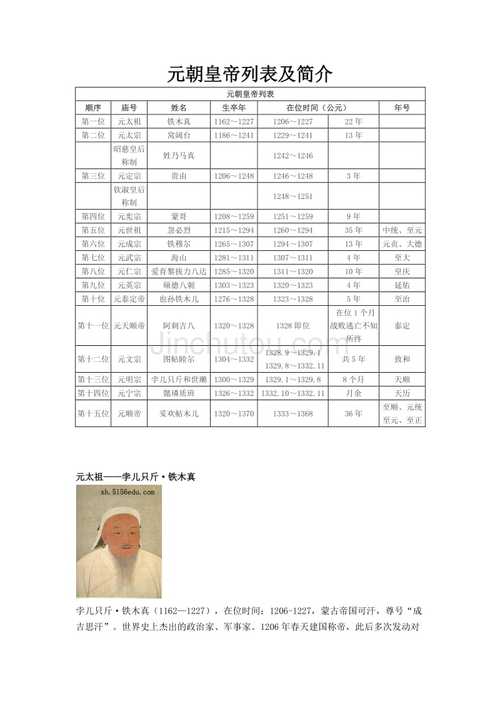 元朝皇帝列表及简介
元朝皇帝列表
顺序 庙号 姓名 生卒年 在位时间（公元） 年号
第一位 元太祖 铁木真 1162～1227 1206～1227 22 年
第二位 元太宗 窝阔台 1186～1241 1229～1241 13 年
昭慈皇后称制 姓乃马真 1242～1246
第三位 元定宗 贵由 1206～1248 1246～1248 3 年
钦淑皇后称制 1248～1251
第四位 元宪宗 蒙哥 1208～1259 1251～1259 9 年
第五位 元世祖 忽必烈 1215～1294 1260～1294 35 年 中统、至元
第六位 元成宗 铁穆尔 1265～1307 1294～1307 13 年 元贞、大德
第七位 元武宗 海山 1281～1311 1307～1311 4 年 至大
第八位 元仁宗 爱育黎拔力八达 1285～1320 1311～1320 10 年 至庆
第九位 元英宗 硕德八剌 1303～1323 1320～1323 4 年 延佑
第十位 元泰定帝 也孙铁木儿 1276～1328 1323～1328 5 年 至治
第十一位 元天顺帝 阿剌吉八 1320～1328 1328 即位 在位 1 个月战败逃亡不知所终 泰定
第十二位 元文宗 图帖睦尔 1304～1332 1328.9～1329.1 1329.8～1332.11 共 5 年 致和
第十三位 元明宗 孛儿只斤和世㻋 1300～1329 1329.1～1329.8 8 个月 天顺
第十四位 元宁宗 懿璘质班 1326～1332 1332.10～1332.11 月余 天历
第十五位 元顺帝 妥欢帖木儿 1320～1370 1333～1368 36 年 至顺、元统至元、至正
Jinchutou.com
元太祖——孛儿只斤·铁木真
xh.5156edu.com
孛儿只斤·铁木真（1162—1227），在位时间：1206-1227，蒙古帝国可汗，尊号“成
吉思汗”。世界史上杰出的政治家、军事家。1206 年春天建国称帝，此后多次发动对